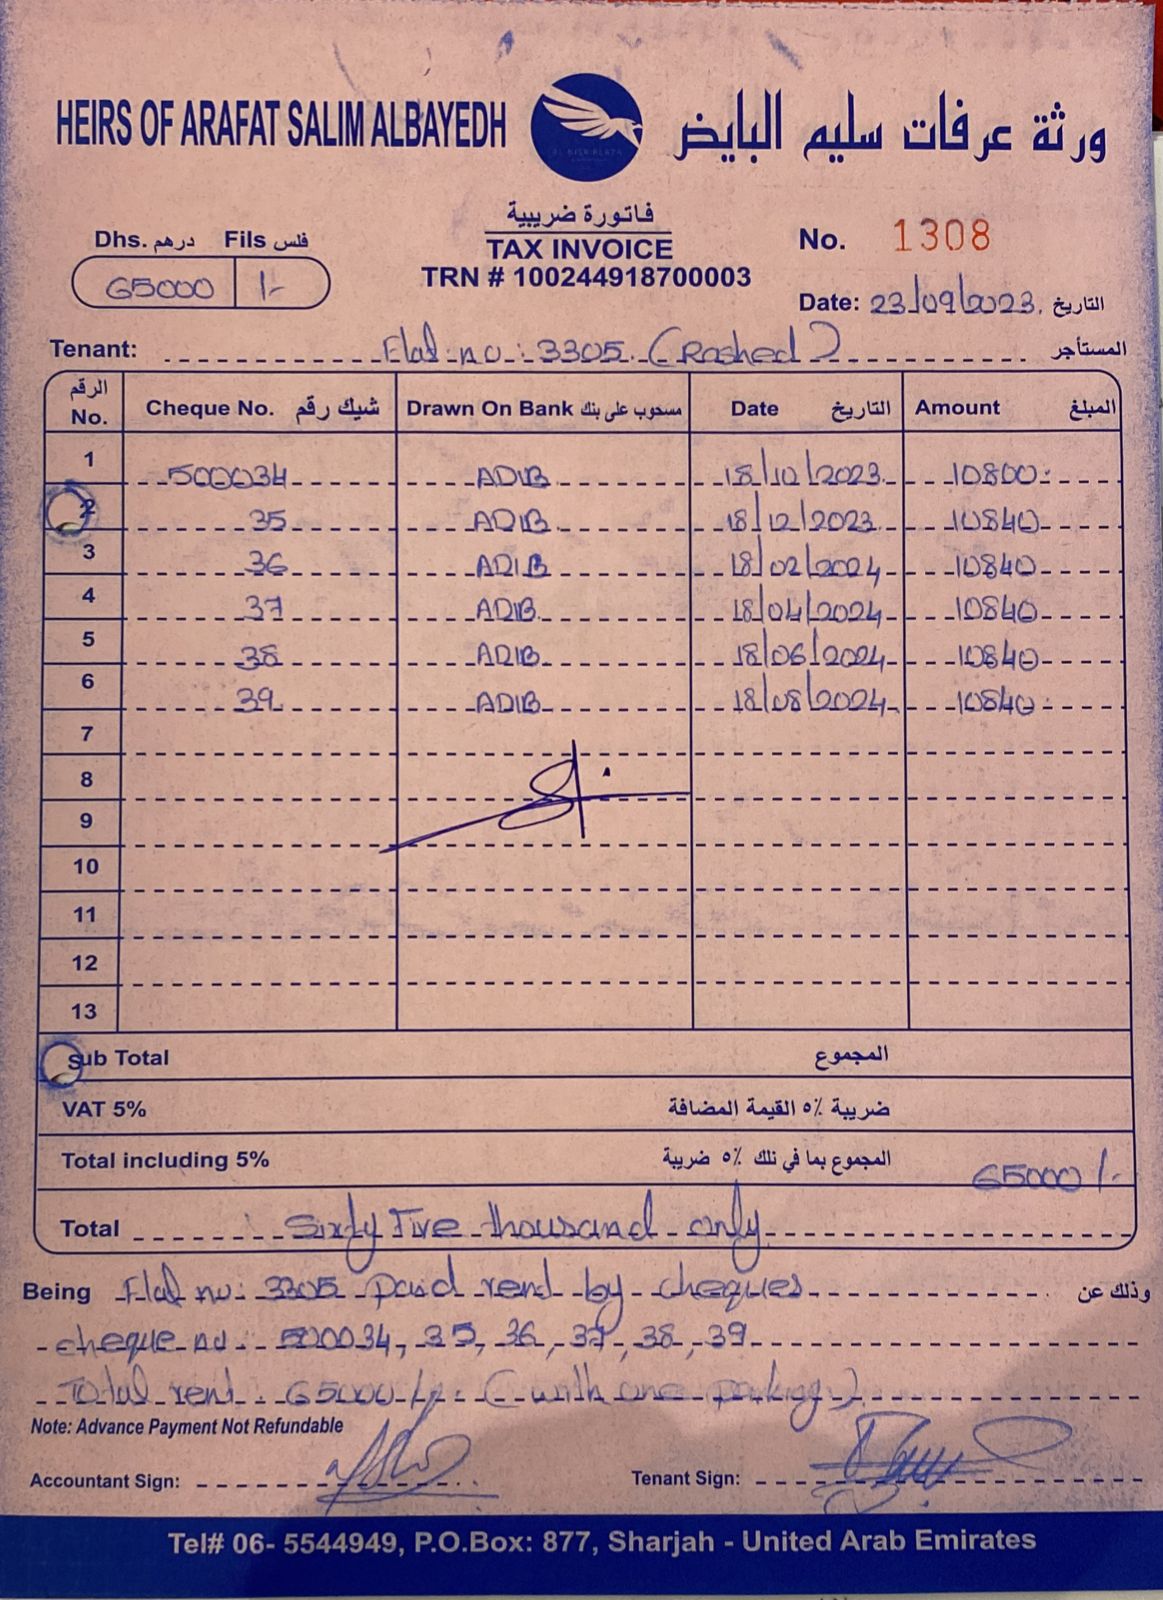 HEIRS OF ARAFAT SALIM ALBAYEDH
ورثة عرفات سليم البايض
فاتورة ضريبية
TAX INVOICE
TRN # 100244918700003
Dhs. درهم Fils فلس
65000 /-
No. 1308
Date: 23/09/2023. التاريخ
Tenant: Flat no: 3305. (Rashed) المستأجر
الرقم No. Cheque No. شيك رقم Drawn On Bank مسحوب على بنك Date التاريخ Amount المبلغ
1 500034 ADIB 18/10/2023 10800
2 35 ADIB 18/12/2023 10840
3 36 ADIB 18/02/2024 10840
4 37 ADIB 18/04/2024 10840
5 38 ADIB 18/06/2024 10840
6 39 ADIB 18/08/2024 10840
7
8
9
10
11
12
13
Sub Total المجموع
VAT 5% ضريبة ٥٪ القيمة المضافة
Total including 5% المجموع بما في ذلك ٥٪ ضريبة 65000/-
Total Sixty Five thousand only
Being Flat no: 3305 paid rend by cheques وذلك عن
cheque no: 500034, 35, 36, 37, 38, 39
Total rent: 65000/- (with one parking)
Note: Advance Payment Not Refundable
Accountant Sign: Tenant Sign:
Tel# 06- 5544949, P.O.Box: 877, Sharjah - United Arab Emirates